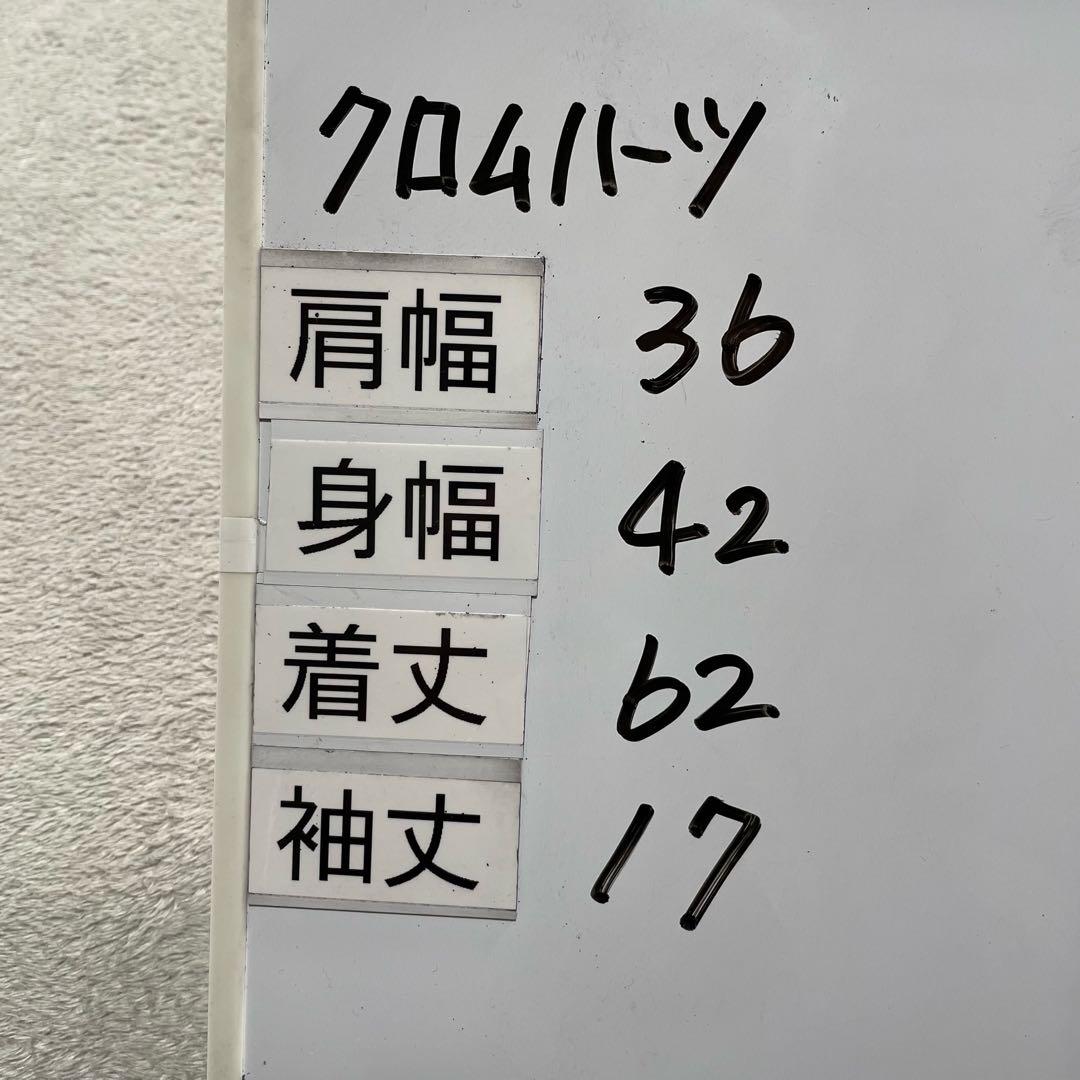 クロムハーツ
肩幅 36
身幅 42
着丈 62
袖丈 17